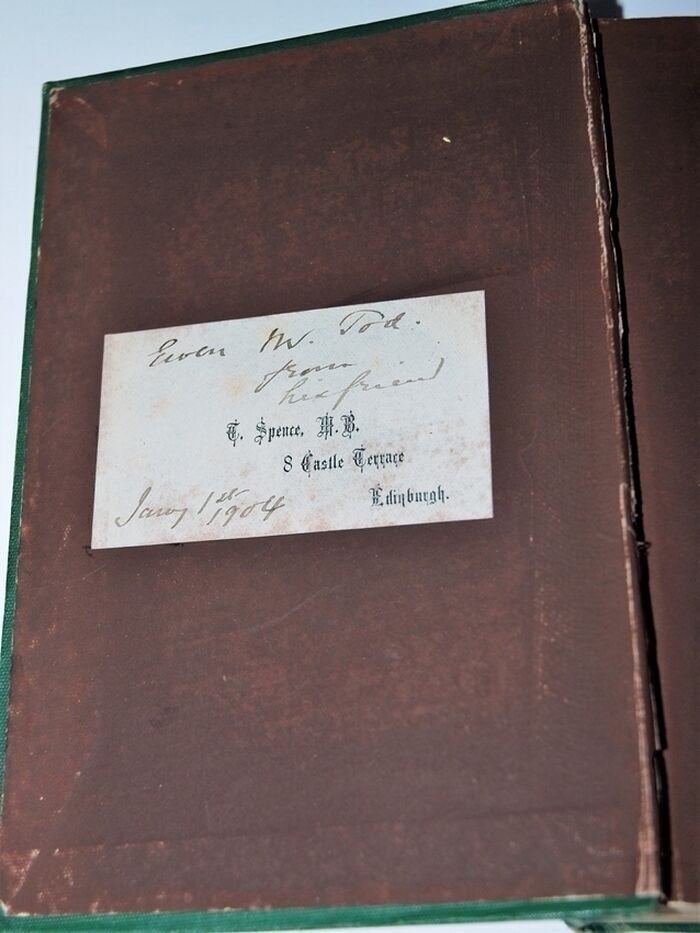 Ewen M. Tod.
from
his friend
T. Spence, M.B.
8 Castle Terrace
Edinburgh.
Jany 1st 1904